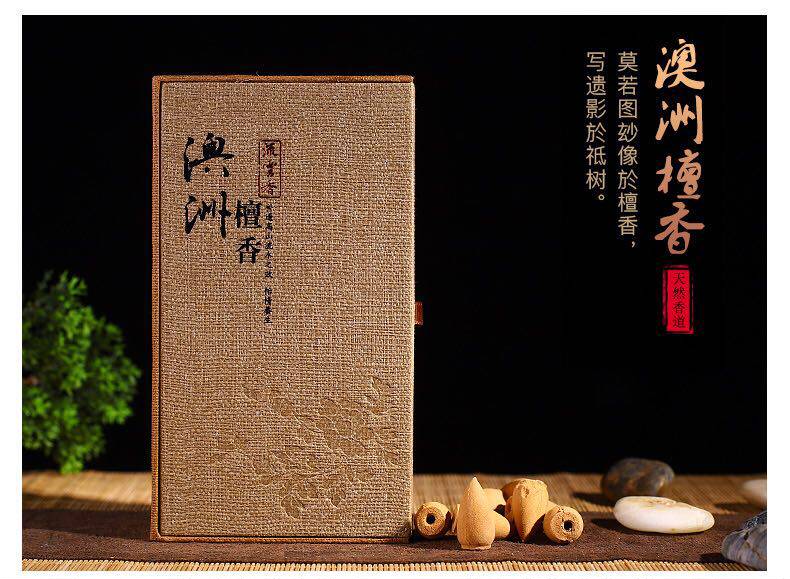 澳洲檀香
莫若图玅像於檀香,
写遗影於祇树。
天然香道
澳洲
檀香